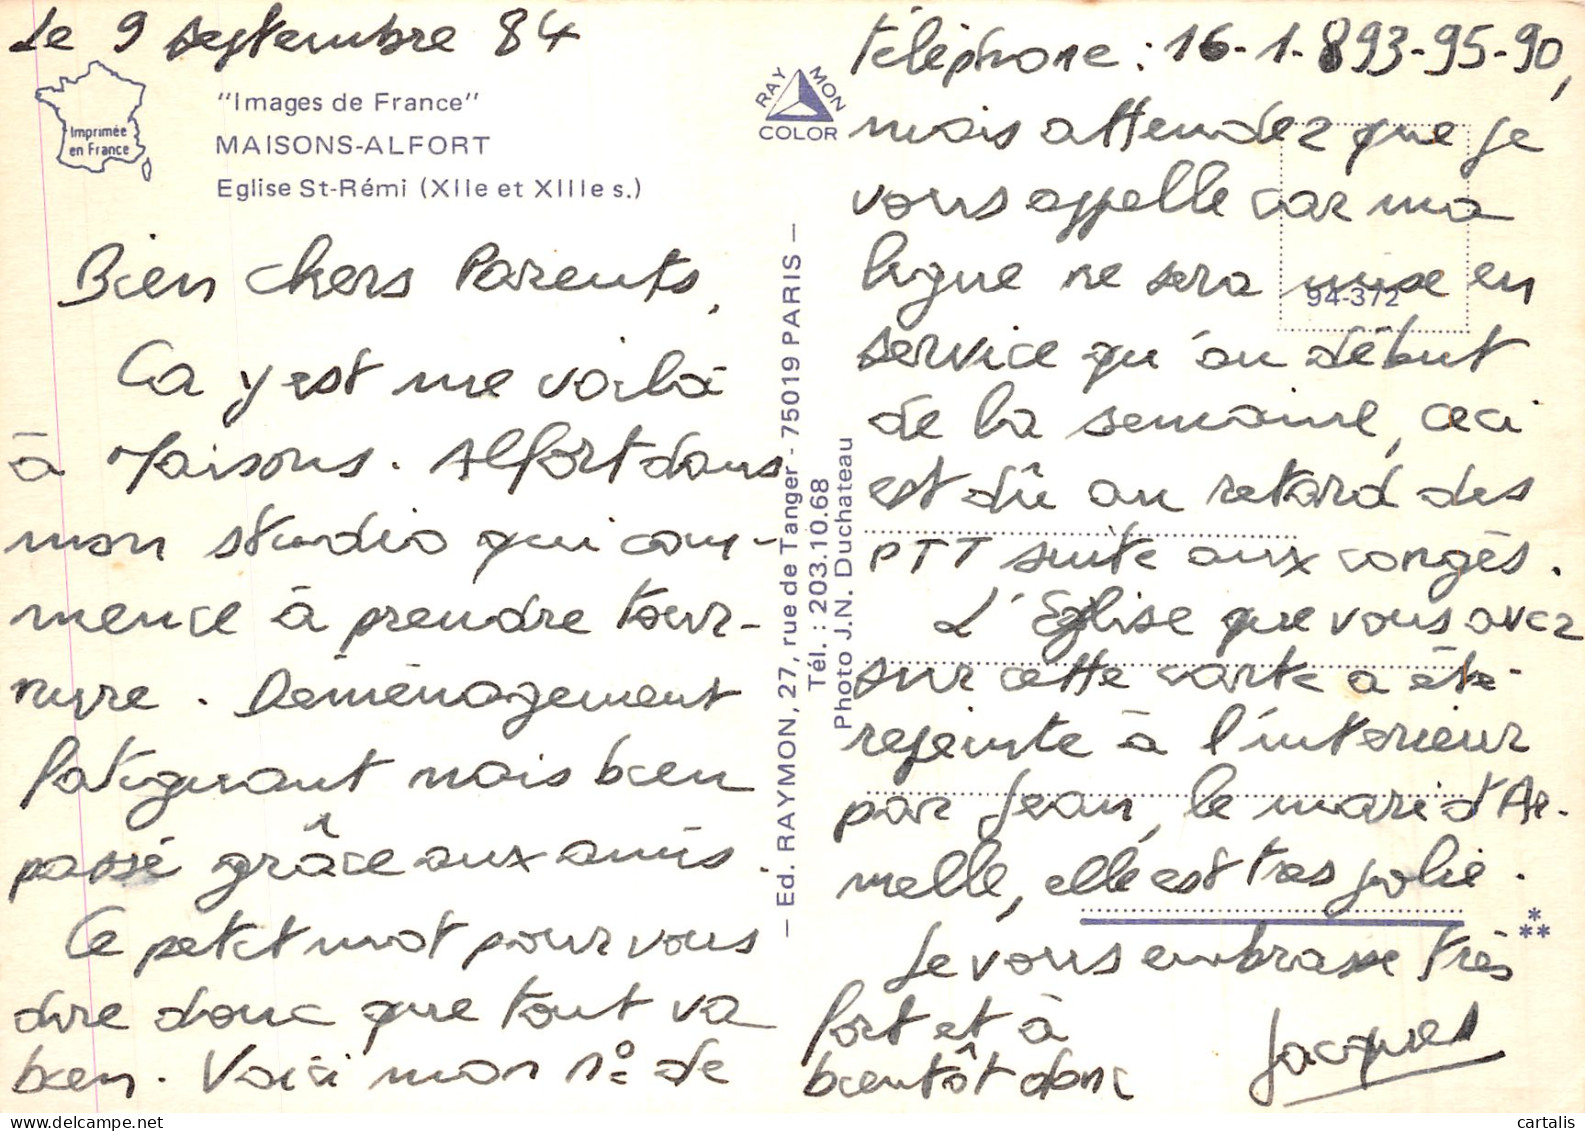 Le 9 septembre 84
Imprimée
en France
"Images de France"
MAISONS-ALFORT
Eglise St-Rémi (XIIe et XIIIe s.)
Bien chers Parents,
Ca y est me voilà
à Maisons-Alfort dans
mon studio qui com-
mence à prendre tour-
nure. Déménagement
fatiguant mais bien
passé grâce aux amis
Ce petit mot pour vous
dire donc que tout va
bien. Voici mon n° de
RAYMON
COLOR
— Ed. RAYMON, 27, rue de Tanger - 75019 PARIS —
Tél. : 203.10.68
Photo J.N. Duchateau
téléphone : 16-1-893-95-90,
mais attendez que je
vous appelle car ma
ligne ne sera mise en
94-372
service qu'au début
de la semaine, ceci
est dû au retard des
PTT suite aux congés.
L'Eglise que vous avez
sur cette carte a été
rejeinte à l'intérieur
par Jean, le mari d'Ar-
melle, elle est très jolie.
Je vous embrasse très
fort et à
bientôt donc
Jacques
cartalis